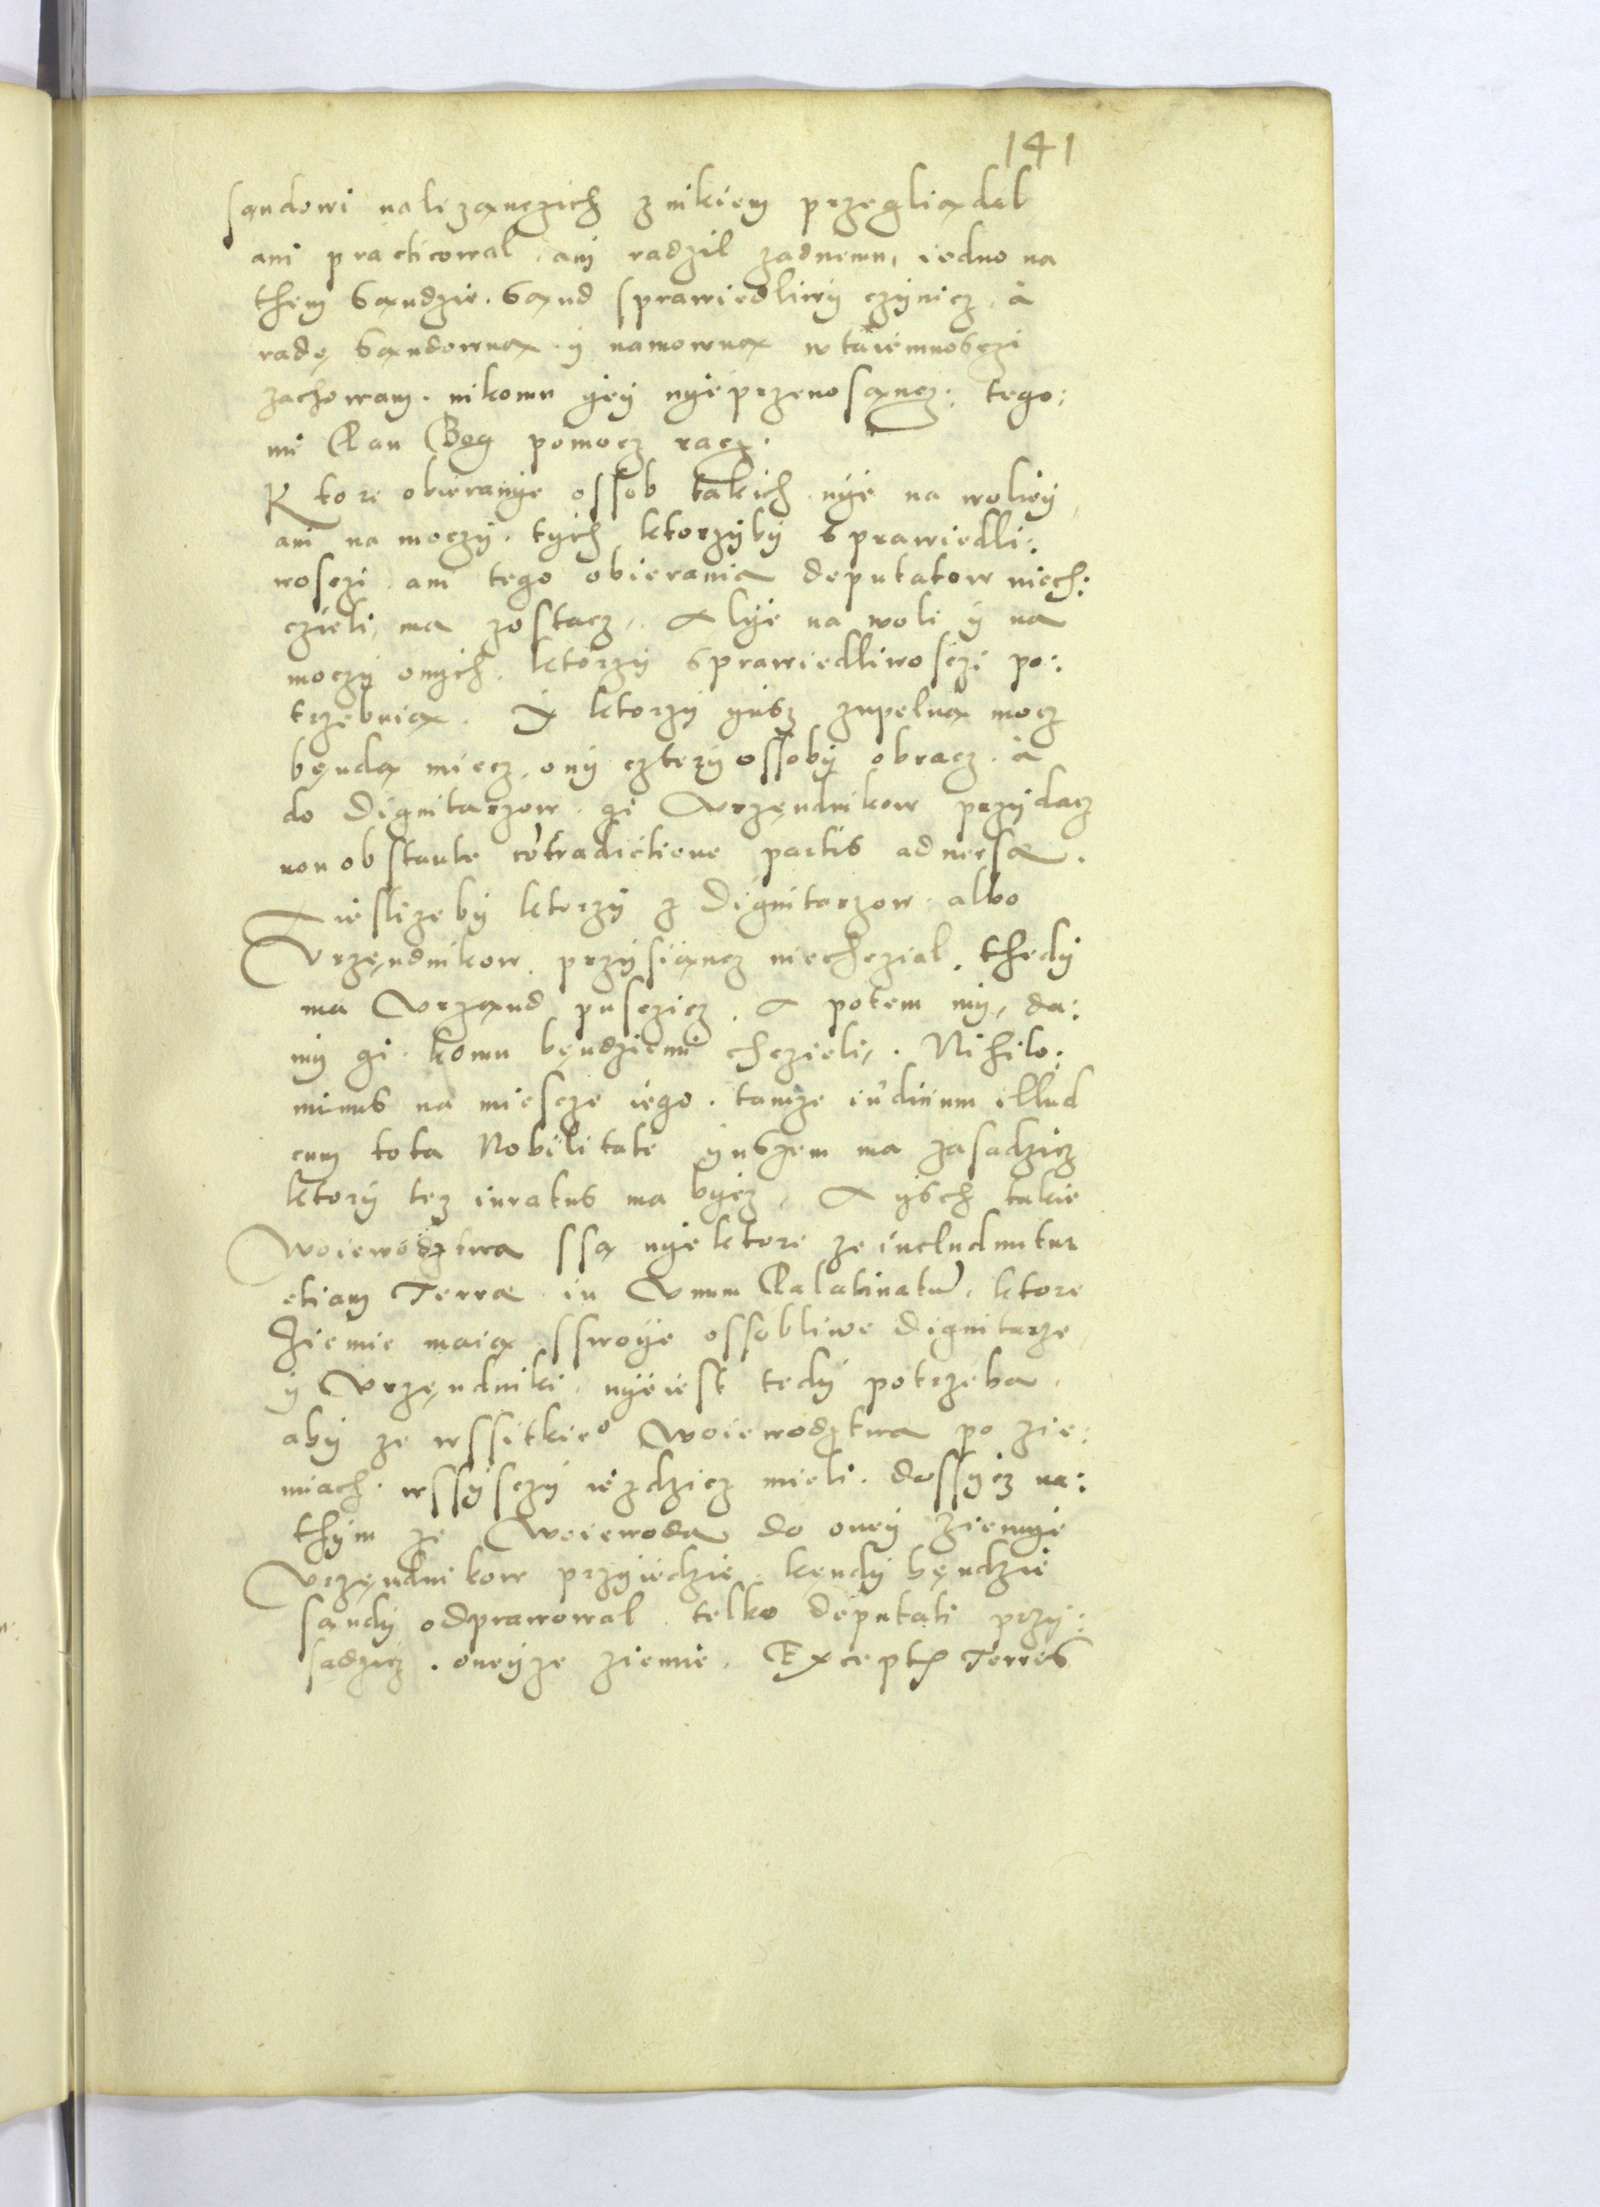 141
sąndowi nalezączich z nikiem przegliądal
ani practicowal, ani radzil zadnemu, iedno na
them Sąndzie. Sąnd sprawiedliwÿ czÿnicz, à
radę Sąndowną ÿ namowną w taiemnosczi
zachowam. nikomu gëÿ nÿeprzenosząncz. tego:
mi Pan Bog pomocz racz.
Ktore obieranÿe ossob takich nÿe na woliëÿ,
ani na moczÿ. tÿch ktorzÿbÿ sprawiedli:
wosczi ani tego obierania deputatow niech:
czieli, ma zostacz, Alÿe na woli ÿ na
moczÿ onÿch. ktorzÿ sprawiedliwosczi po:
trzebuią. Y ktorzÿ ÿusz zupelną mocz
bęndą miecz, onÿ czterÿ ossobÿ obracz. à
do Dignitarzow. gi Vrzęndnikow przÿdacz
non obstante cōtradictione partis aduersæ.
A iesližebÿ ktorzÿ z Dignitarzow albo
Vrzęndnikow przÿsiąncz niechczial, thedÿ
ma Vrząnd pusczicz. A potem mÿ, da:
mÿ gi komu bęndziemi chczieli, . Nihilo:
minus na miescze iego. tamze iudicium illud
cum tota Nobilitate ÿnszem ma zasadzicz
ktorÿ tez iuratus ma bÿcz, A ÿsch takie
Woiewodztwa ssą nÿektore ze includuntur
etiam Terræ in Vnum Palatinatū, ktore
Ziemie maią sswoÿe ossobliwe Dignitarze
ÿ Vrzęndniki, nÿeiest tedÿ potrzeba,
abÿ ze wssitkie° Woiewodztwa po zie:
miach. wssÿsczÿ iezdzicz mieli. dossÿcz na:
thÿm ze Woiewoda do onëÿ ziemÿe
Vrzęndnikow przÿiedzie, kęndÿ bęndzie
sąndÿ odprawowal, telko deputati przÿ:
sadzicz. oneÿze ziemie. Exceptis Terris